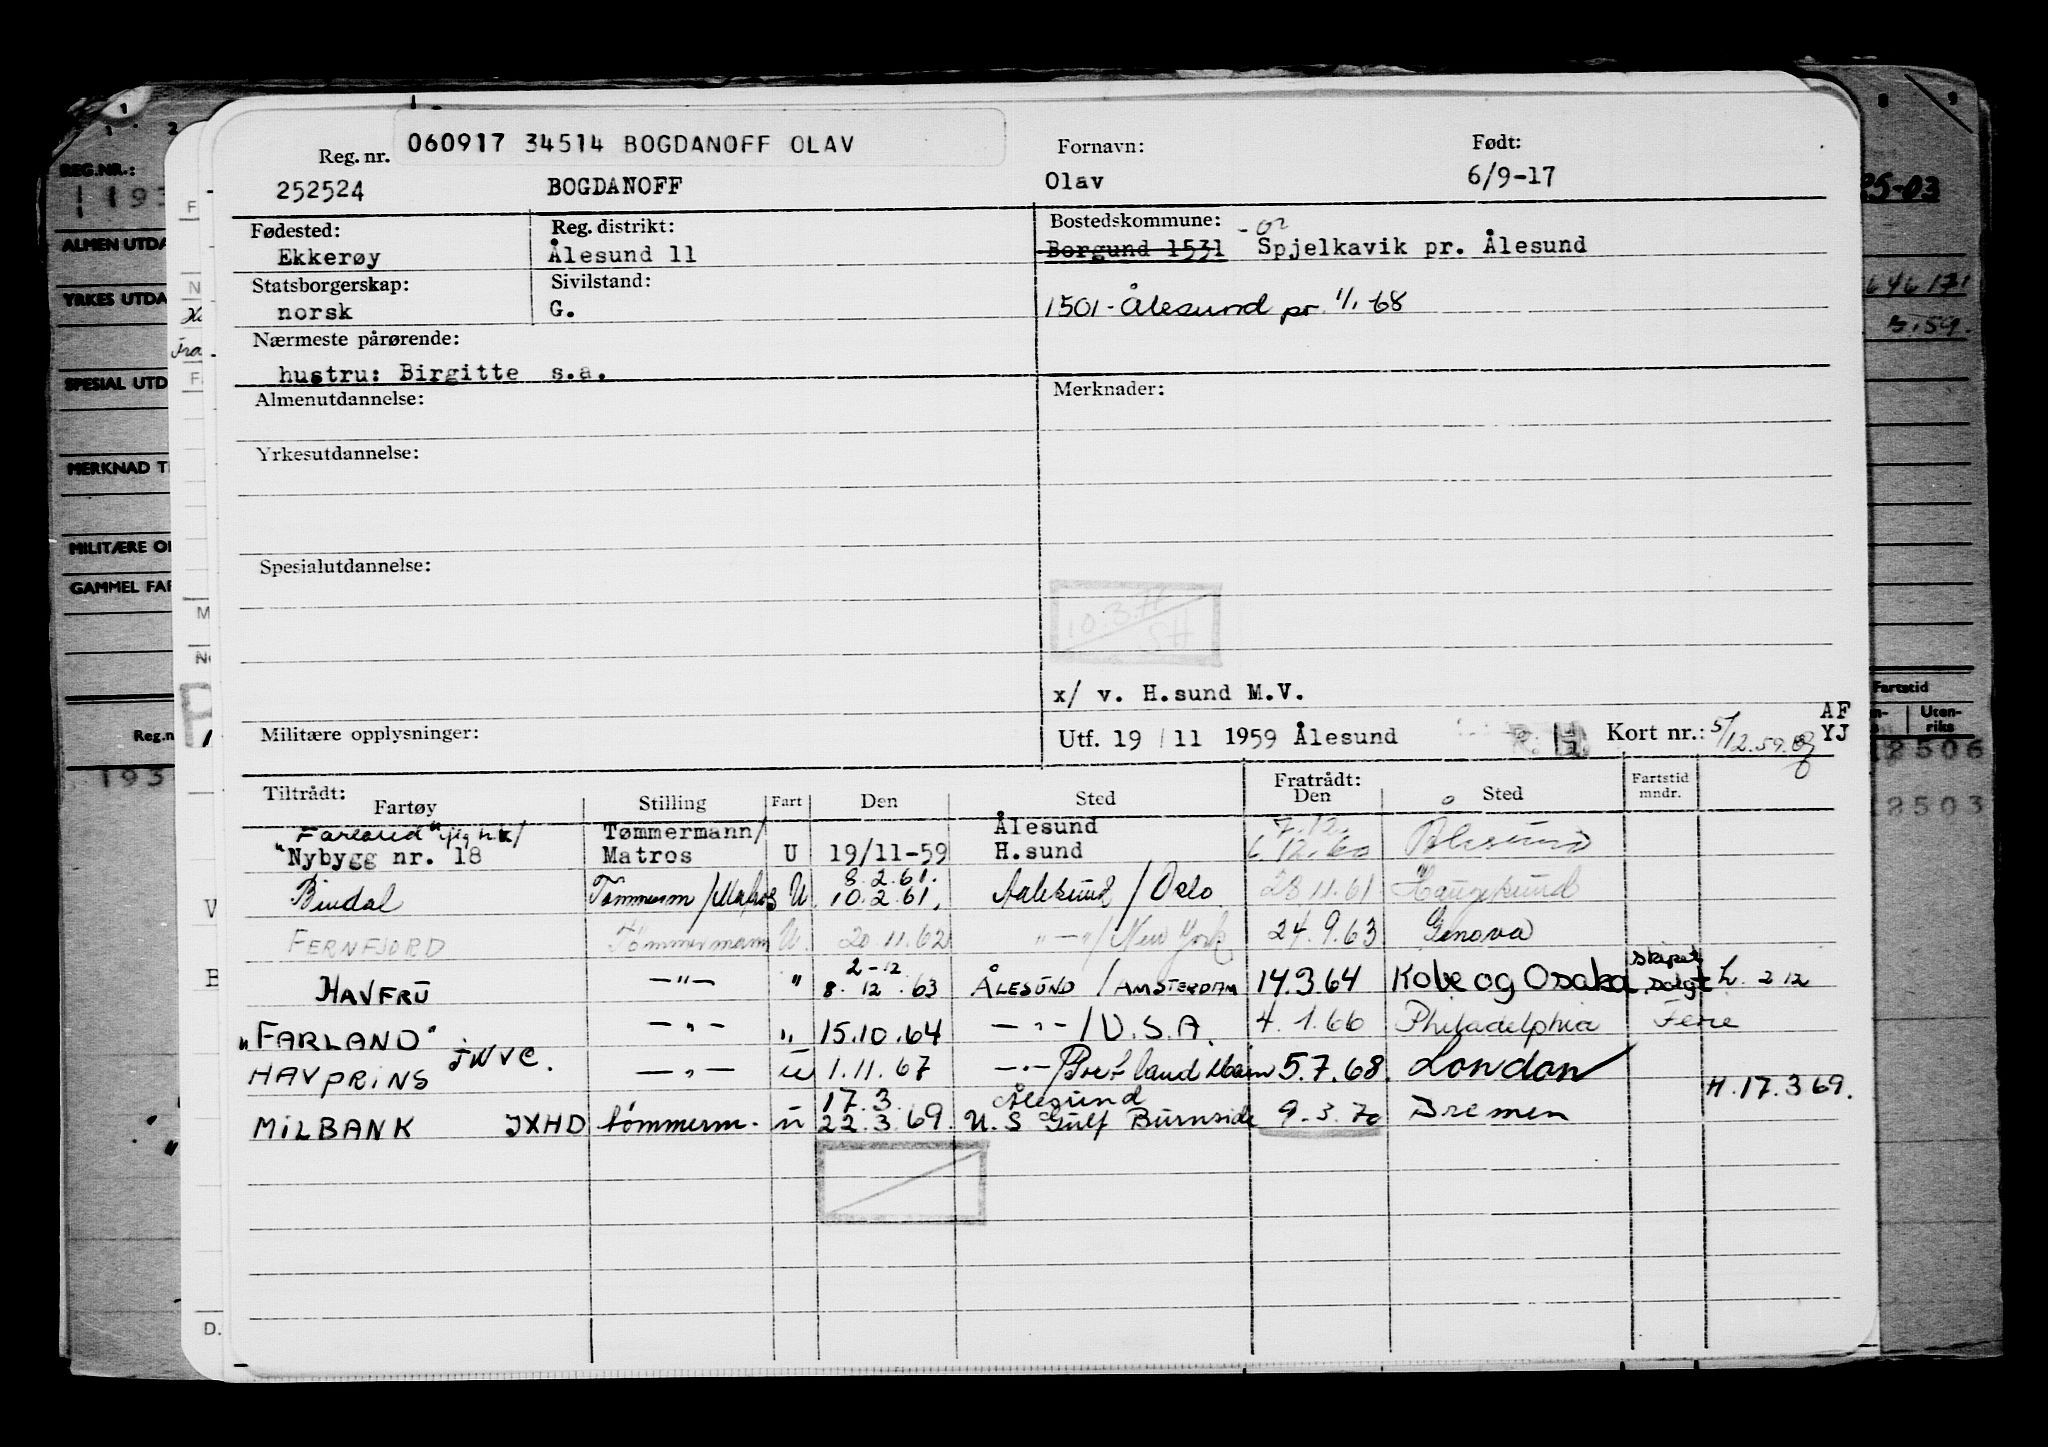 060917 34514 BOGDANOFF OLAV
Reg. nr. Fornavn: Født:
252524 BOGDANOFF Olav 6/9-17
Fødested: Reg. distrikt: Bostedskommune:
Ekkerøy Ålesund 11 Borgund 1531 Spjelkavik pr. Ålesund
Statsborgerskap: Sivilstand:
norsk G. 1501 - Ålesund pr. 1/1-68
Nærmeste pårørende:
hustru: Birgitte s.a.
Almenutdannelse: Merknader:
Yrkesutdannelse:
Spesialutdannelse:
10.3.71
SH
x/ v. H.sund M.V.
Militære opplysninger: Utf. 19/11 1959 Ålesund Kort nr.: 5/12.59. AF
YJ
Tiltrådt: Fratrådt:
Fartøy Stilling Fart Den Sted Den Sted Fartstid mndr.
"Farland" Tømmermann/ Ålesund 7.12.
"Nybygg nr. 18 Matros U 19/11-59 H.sund 6.12.60 Ålesund
8.2.61.
Bindal Tømmerm/Matros U 10.2.61. Aalesund/Oslo 28.11.61 Haugesund
FERNFJORD Tømmermann U. 20.11.62 " — "/New York 24.9.63 Genova
2-12. Skipet
HAVFRU —"— " 8.12.63 ÅLESUND / AMSTERDAM 14.3.64 Kobe og Osaka solgt h. 2 12
"FARLAND" —"— " 15.10.64 —"—/U.S.A. 4.1.66 Philadelphia Ferie
HAVPRINS JWVC. —"— U 1.11.67 —"—/Portland Main 5.7.68. London
17.3. Ålesund H.17.3 69.
MILBANK JXHD tømmerm. U 22.3.69. U.S Gulf Burnside 9.3.70 Bremen
REG.NR.:
1193
ALMEN UTDA
YRKES UTDA
SPESIAL UTD
MERKNAD T
MILITÆRE O
GAMMEL FAR
Reg.n
193
8 9
25-03
646171
5.59.
Fartstid
Uten-
riks
12506
12503